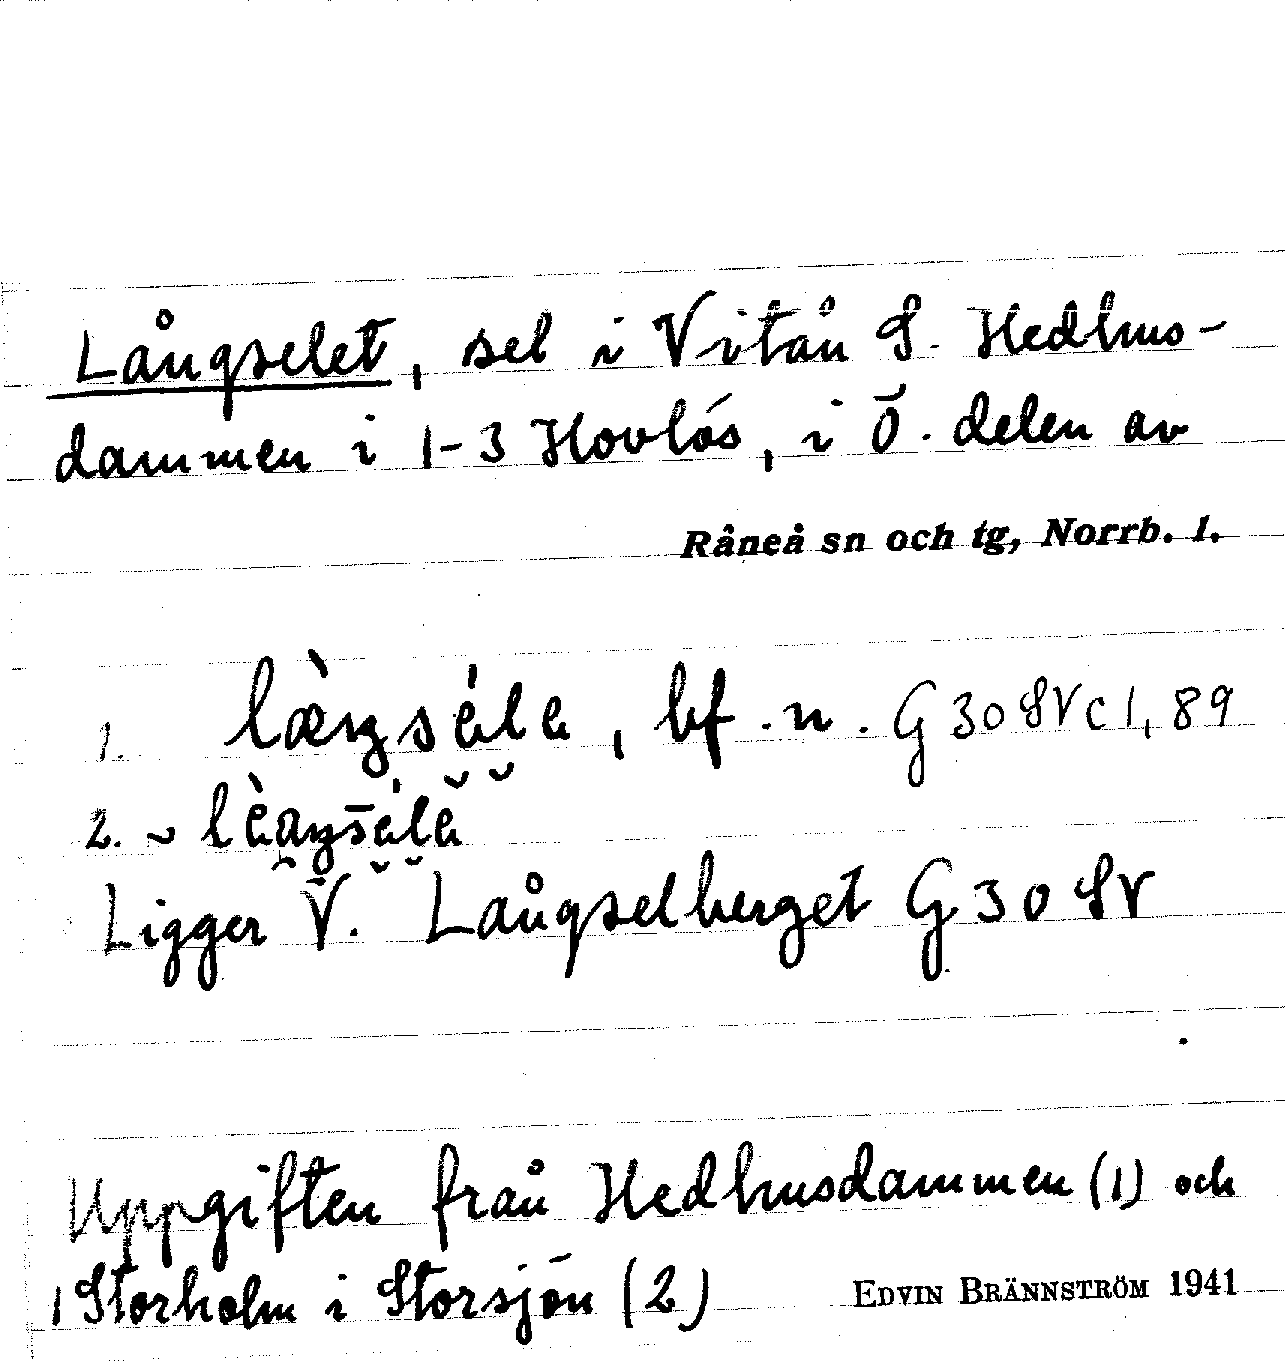 Långselet, sel i Vitån S. Hedhus-
dammen i 1-3 Hovlös, i Ö. delen av
Råneå sn och tg, Norrb. l.
1. læŋséla, bf. n. G 30 SV c 1, 89
2. ~
Ligger V. Långselberget G 30 SV
Uppgiften från Hedhusdammen (1) och
1 Storholm i Storsjön (2) EDVIN BRÄNNSTRÖM 1941